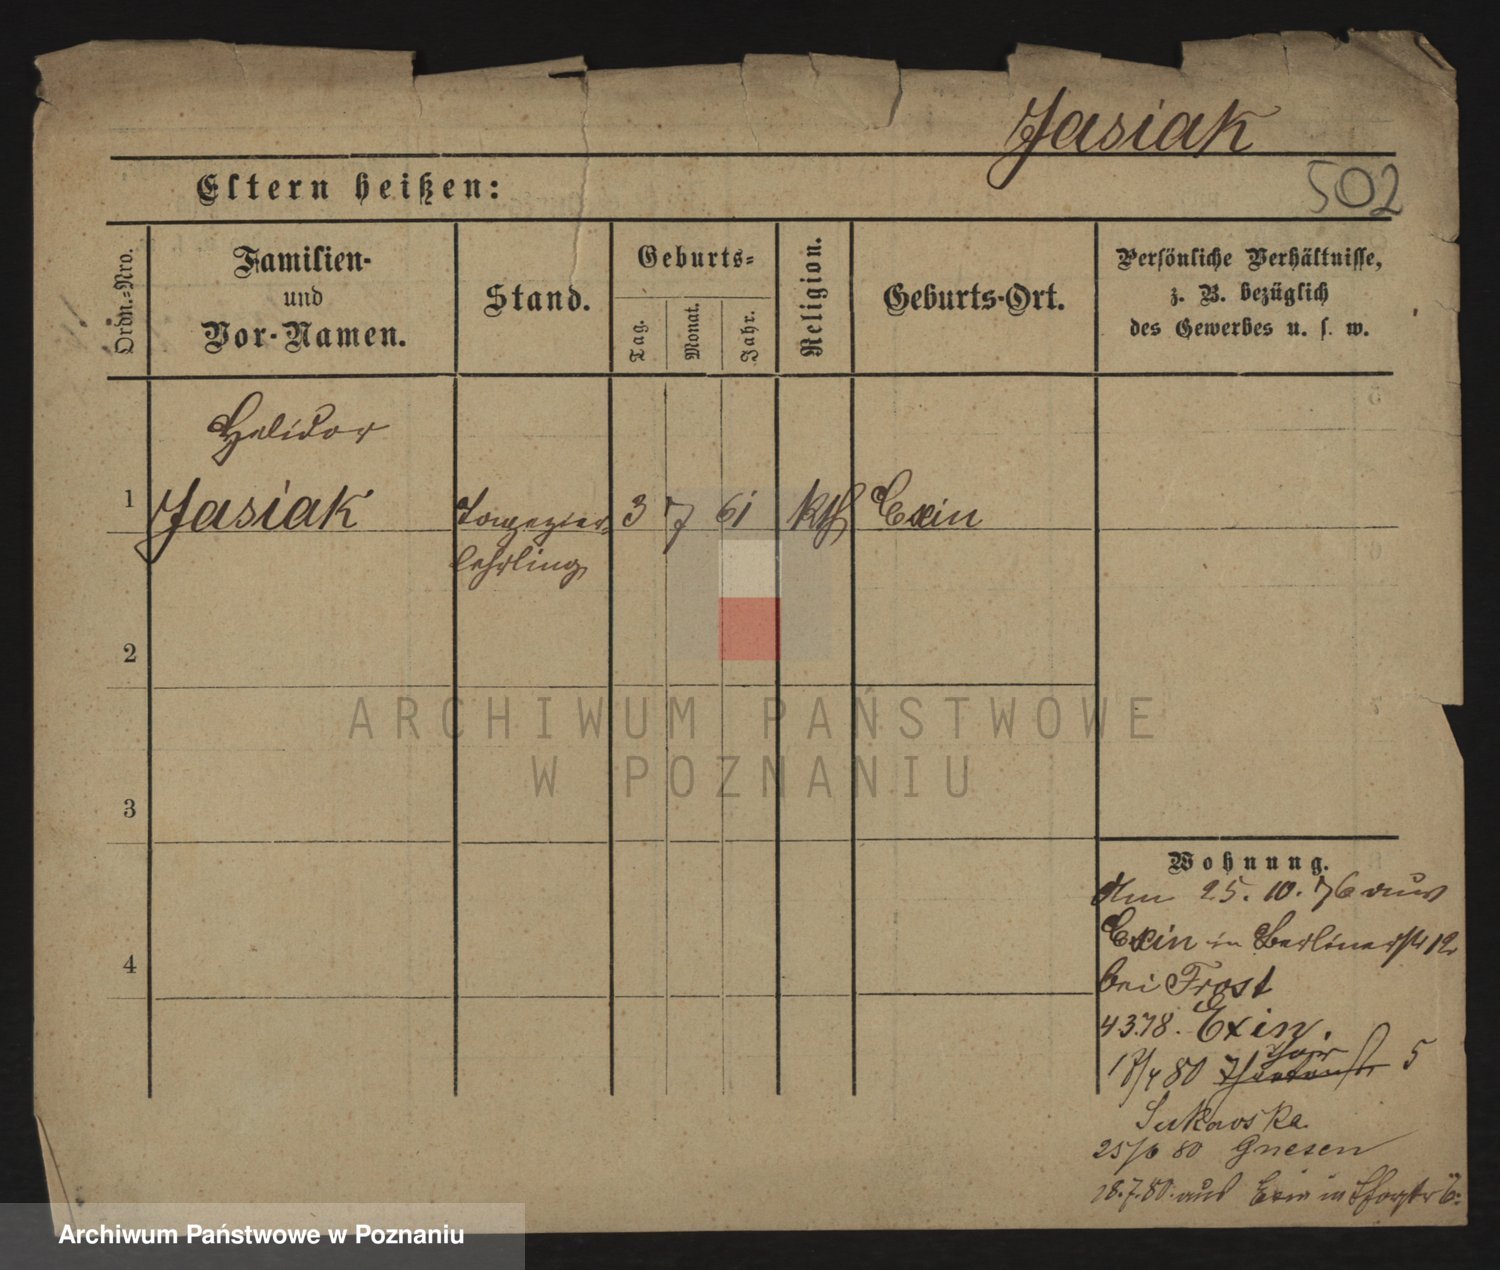 Jasiak
502
Eltern heißen:
Ordn.-Nro.
Familien-
und
Vor-Namen.
Stand.
Geburts-
Tag.
Monat.
Jahr.
Religion.
Geburts-Ort.
Persönliche Verhältnisse,
z. B. bezüglich
des Gewerbes u. s. w.
Helidor
1 Jasiak Tapezier- 3 7 61 kth Exin
lehrling
2
3
4
Wohnung.
Am 25. 10. 76 aus
Exin in Berlinerstr 12
bei Frost
4 3.78. Exin.
4 80 5
25/6 80 Gnesen
18.7.80. aus Exin in
ARCHIWUM PAŃSTWOWE
W POZNANIU
Archiwum Państwowe w Poznaniu